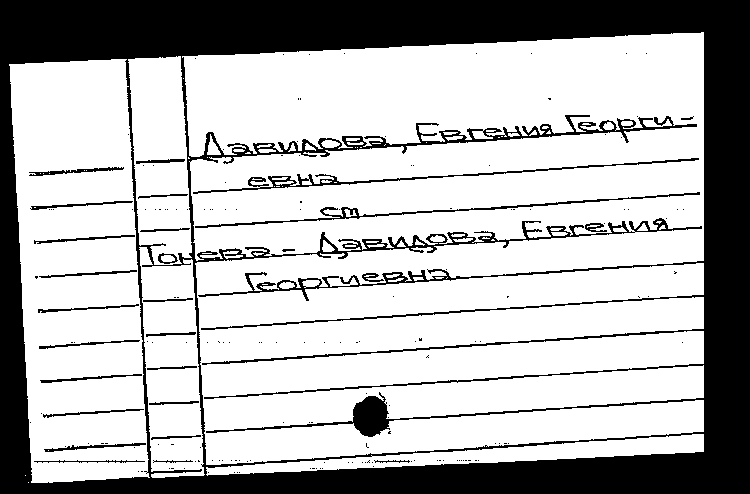 Давидова, Евгения Георги-
евна
ст.
Тонева - Давидова, Евгения
Георгиевна.